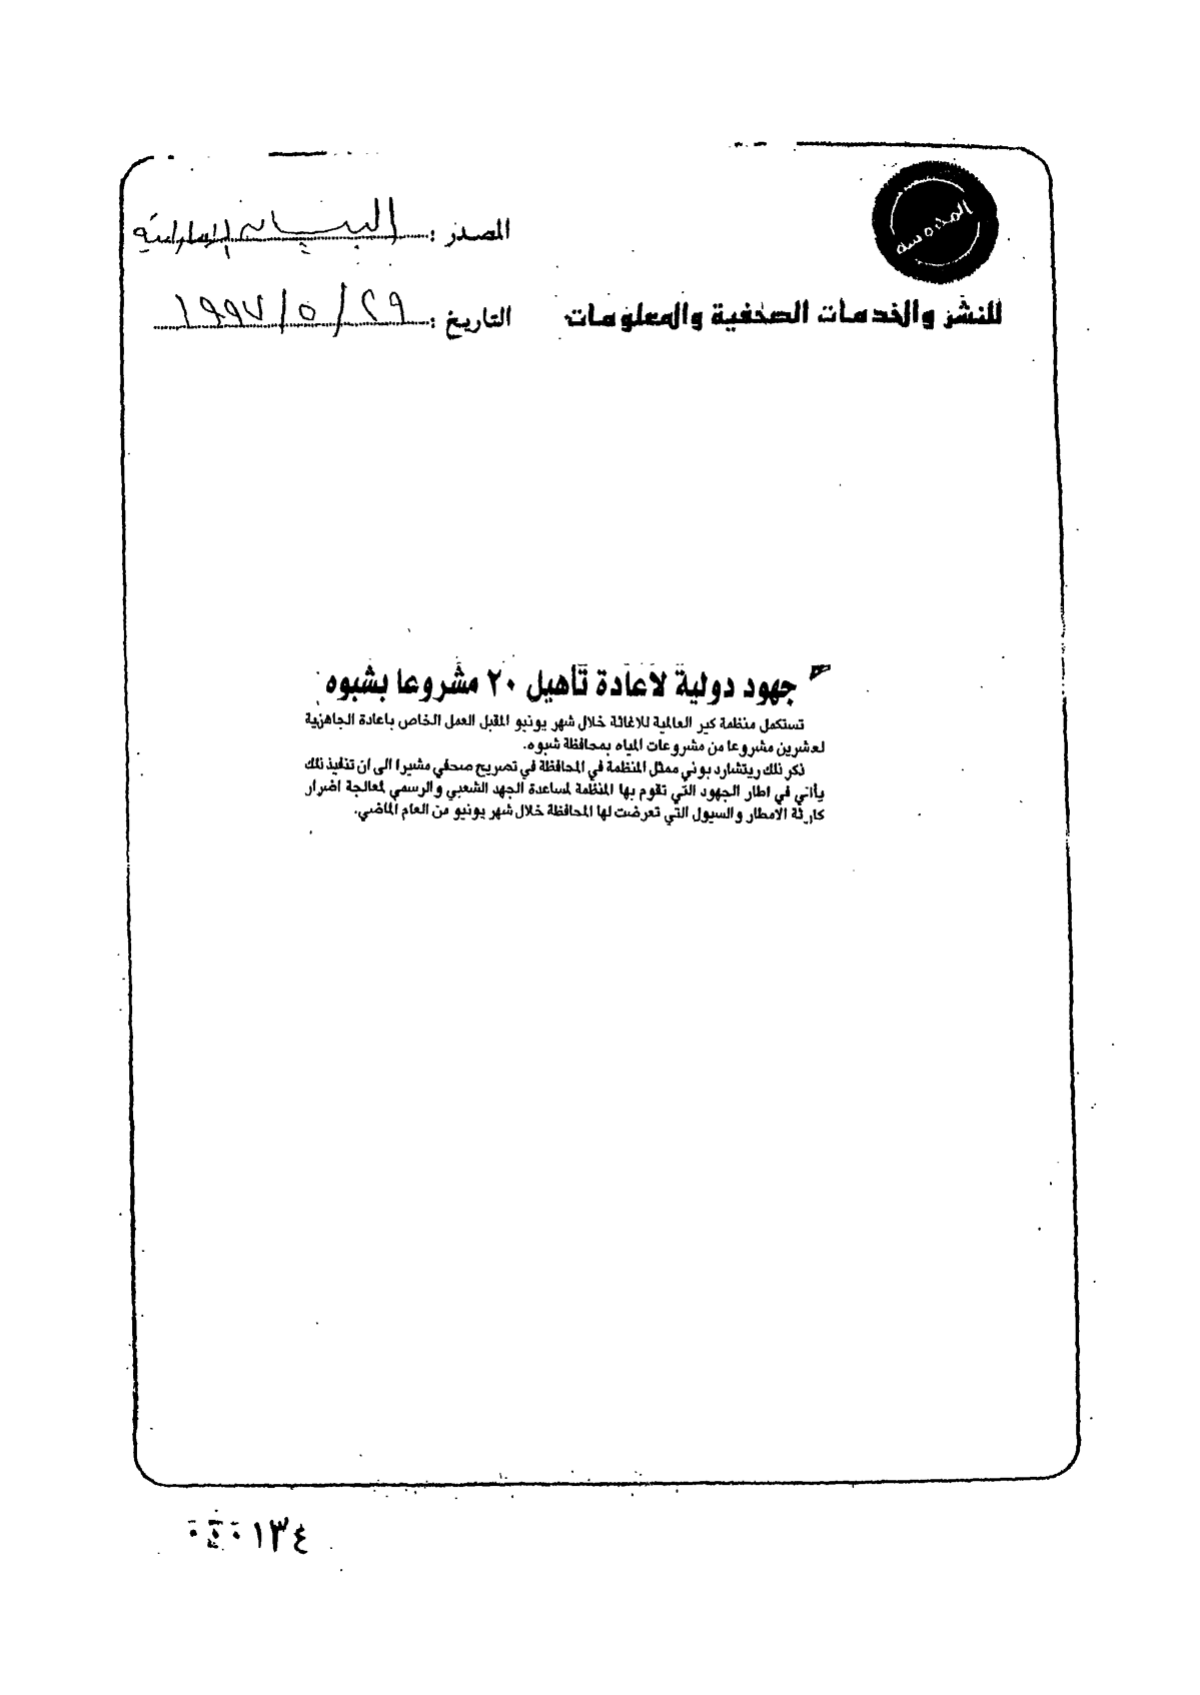 المصدر : البيان الإماراتية
للنشر والخدمات الصحفية والمعلومات
التاريخ : ٢٩ / ٥ / ١٩٩٧
جهود دولية لاعادة تأهيل ٢٠ مشروعا بشبوه
تستكمل منظمة كير العالمية للاغاثة خلال شهر يونيو المقبل العمل الخاص باعادة الجاهزية
لعشرين مشروعا من مشروعات المياه بمحافظة شبوه.
ذكر ذلك ريتشارد بوني ممثل المنظمة في المحافظة في تصريح صحفي مشيرا الى ان تنفيذ ذلك
يأتي في اطار الجهود التي تقوم بها المنظمة لمساعدة الجهد الشعبي والرسمي لمعالجة اضرار
كارثة الامطار والسيول التي تعرضت لها المحافظة خلال شهر يونيو من العام الماضي.